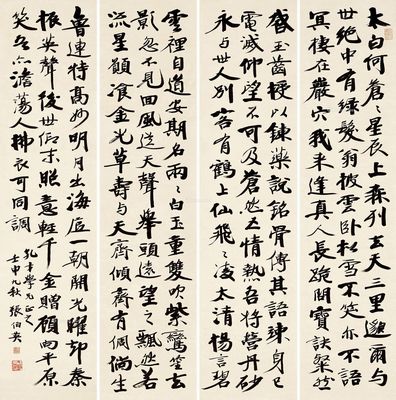 太白何蒼〻星辰上森列去天三里邈爾与
世絶中有綠髮翁披雲臥松雪不笑亦不語
冥棲在巖穴我来逢真人長跪問寶訣粲然
啓玉齒授以鍊藥說銘骨傳其語竦身已
電滅仰望不可及蒼然五情熱吾將營丹砂
永与世人別客有鶴上仙飛〻凌太清揚言碧
雲裡自道安期名兩〻白玉童雙吹紫鸞笙去
影忽不見回風送天聲舉頭遠望之飄然若
流星願飡金光草壽与天齊傾齊有倜儻生
魯連特高妙明月出海底一朝開光曜却秦
振英聲後世仰末照意輕千金贈顧向平原
笑吾亦澹蕩人拂衣可同調
學兄正之
壬申九秋張伯英